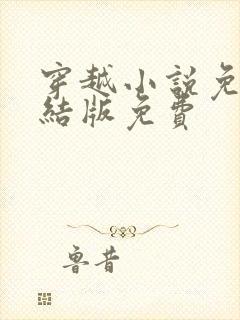 穿越小説免
結版免費
魯昔